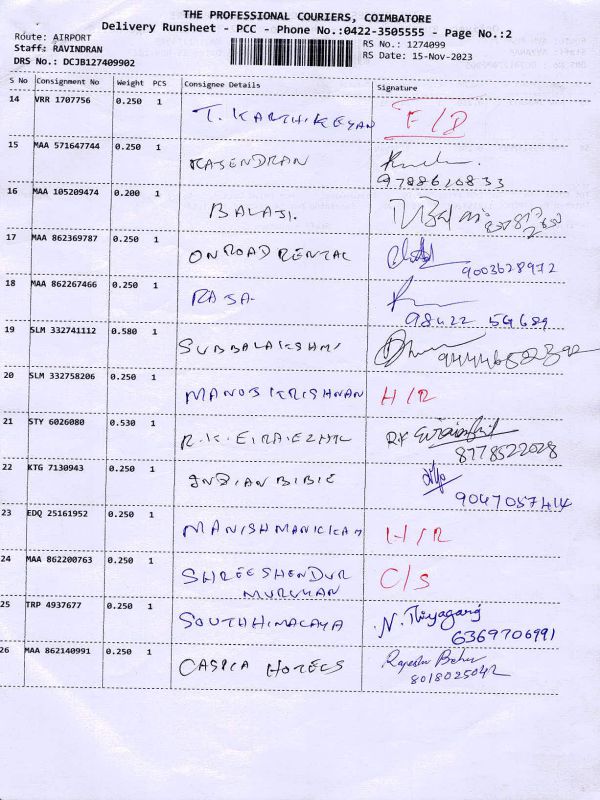 THE PROFESSIONAL COURIERS, COIMBATORE
Delivery Runsheet - PCC - Phone No.:0422-3505555 - Page No.:2
Route: AIRPORT
Staff: RAVINDRAN
DRS No.: DCJB127409902
RS No.: 1274099
RS Date: 15-Nov-2023
S No Consignment No Weight PCS Consignee Details Signature
14 VRR 1707756 0.250 1 T. KARTHIKEYAN F/D
15 MAA 571647744 0.250 1 RAJENDRAN
9788620833
16 MAA 105209474 0.200 1 BALAJI.
17 MAA 862369787 0.250 1 ONROAD RENTAL
9003628972
18 MAA 862267466 0.250 1 RAJA
98422 59689
19 SLM 332741112 0.580 1 SUBBALAKSHMI
20 SLM 332758206 0.250 1 MANOJ KRISHNAN H/R
21 STY 6026080 0.530 1 R.K.
8778522028
22 KTG 7130943 0.250 1 INDIAN BIBLE
9047057414
23 EDQ 25161952 0.250 1 MANISH MANICKAM H/R
24 MAA 862200763 0.250 1 SHREESHENDUR
MURUKAN C/S
25 TRP 4937677 0.250 1 SOUTH HIMALAYA N. Thiyagaraj
6369706991
26 MAA 862140991 0.250 1 CASICA HOTELS Rajesh
8018025042